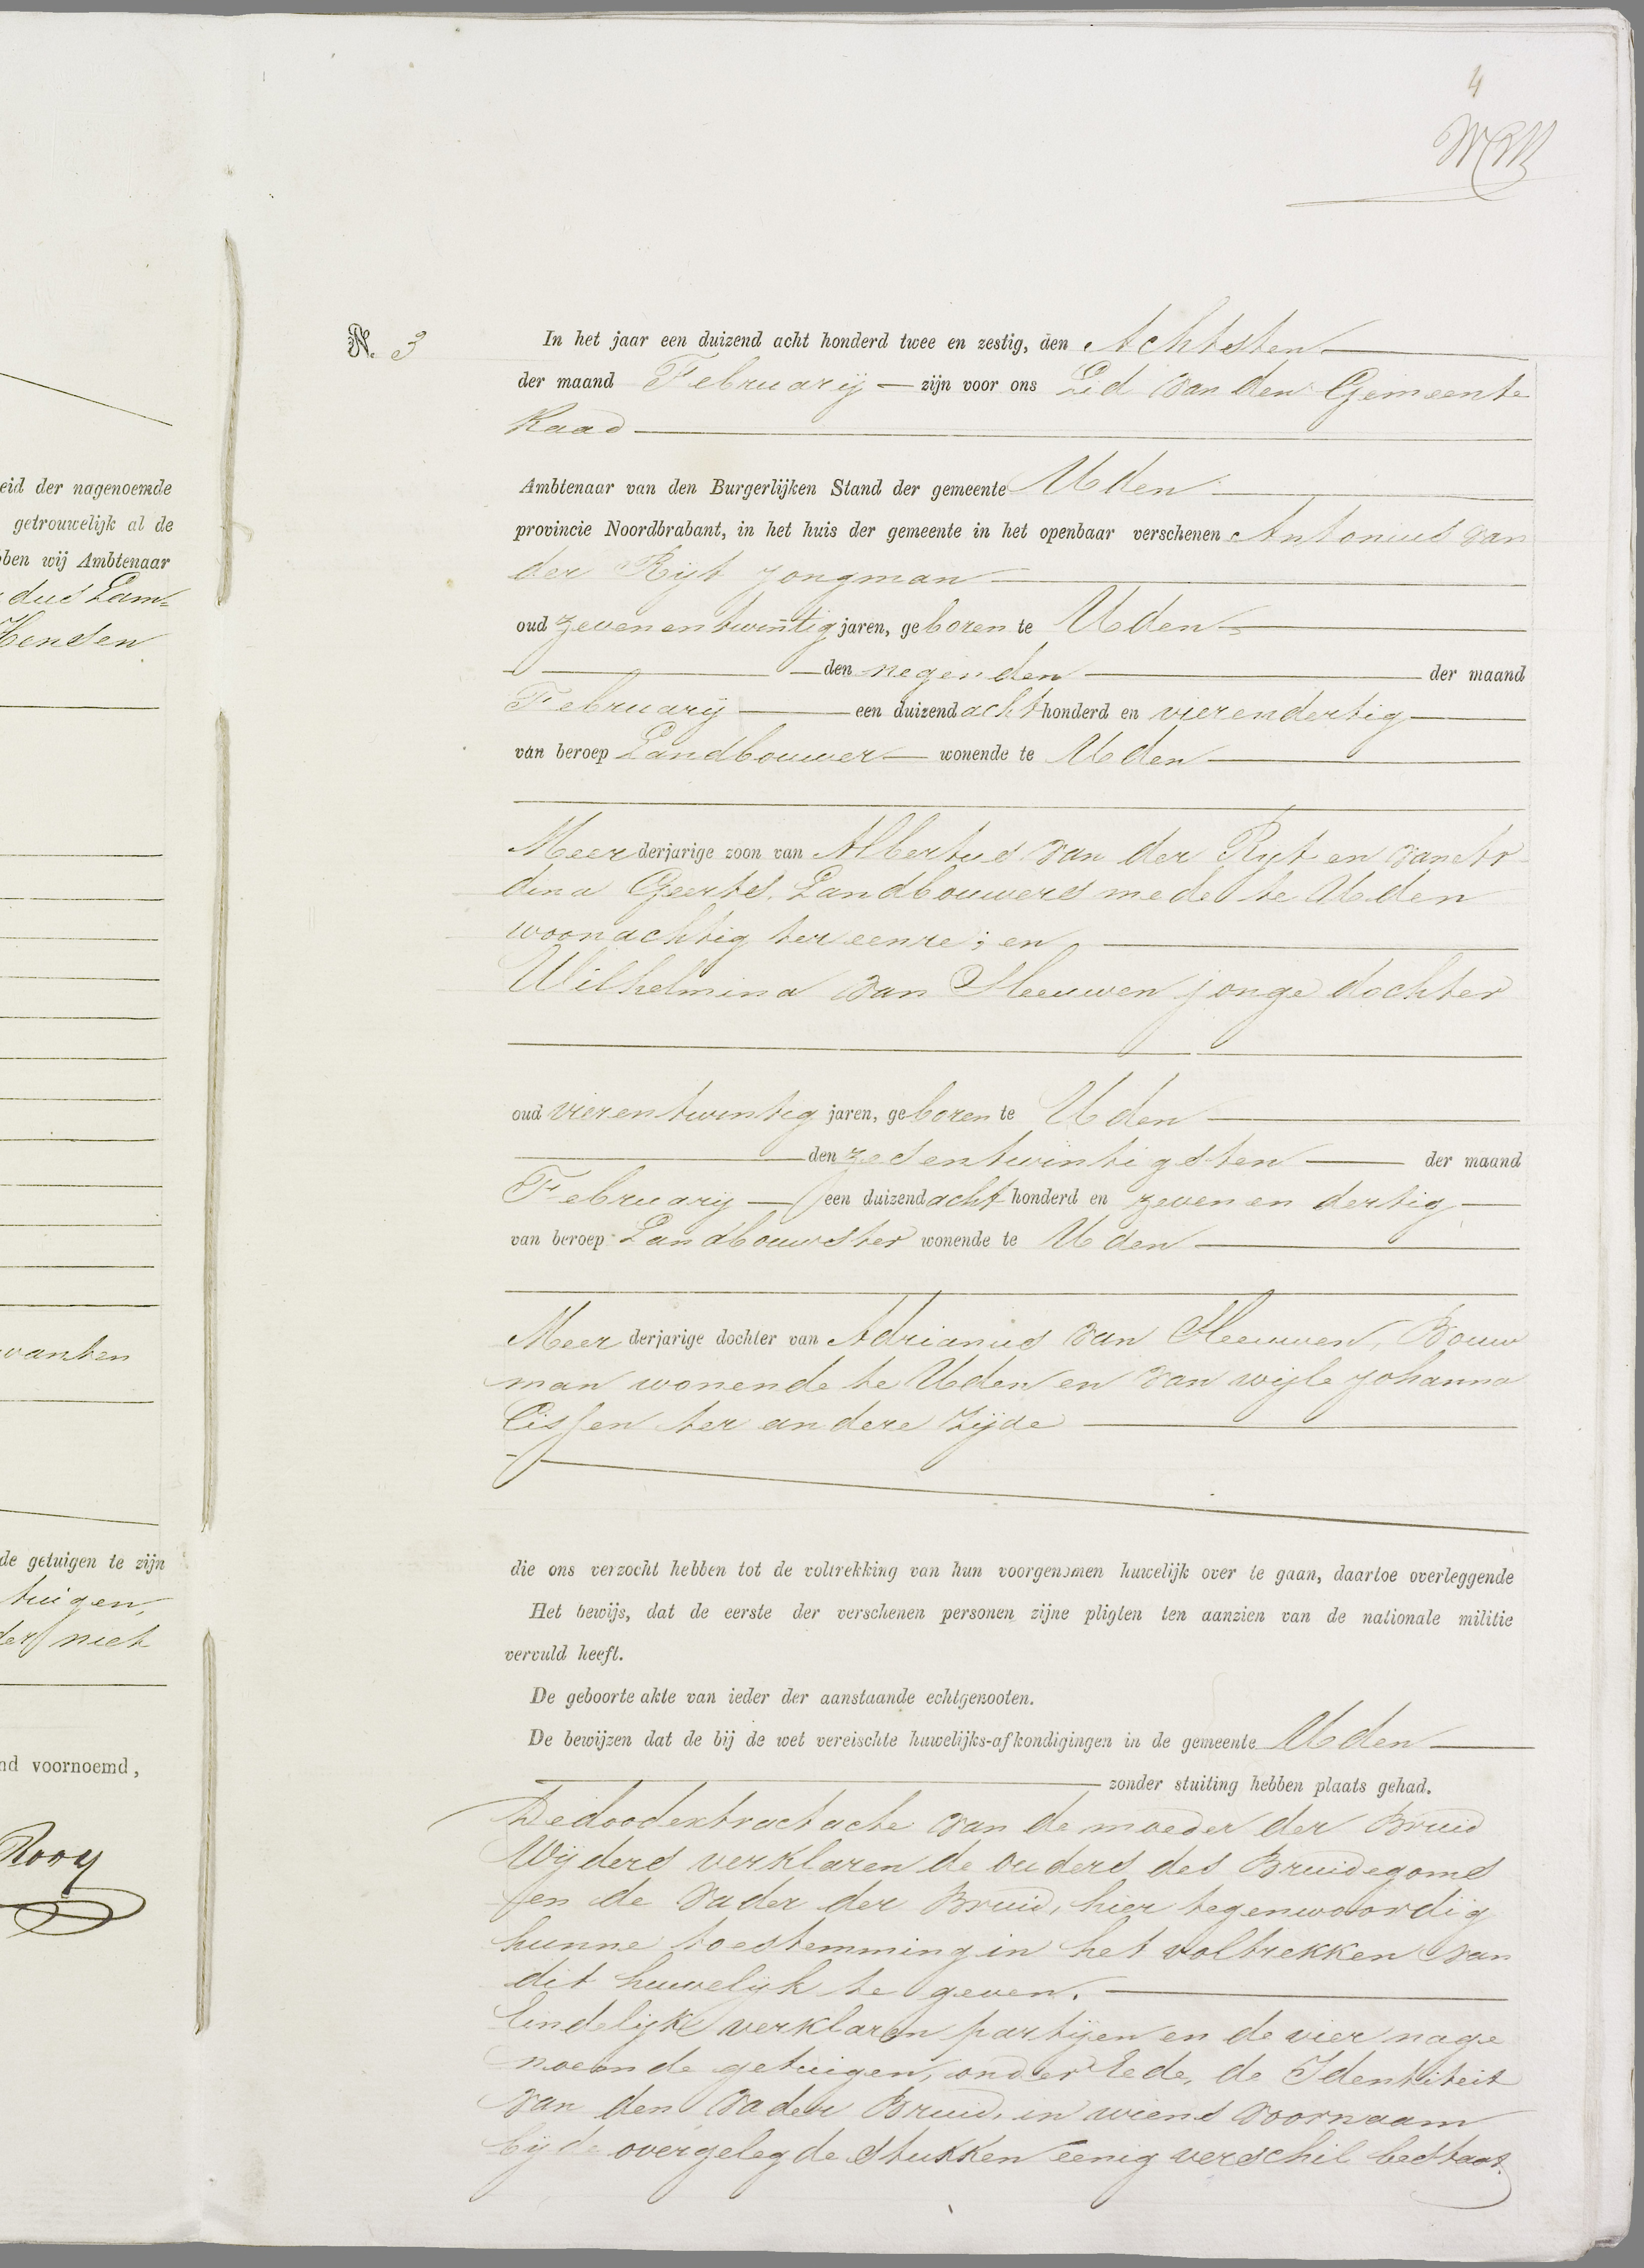 eid der nagenoemde
getrouwelijk al de
ben wij Ambtenaar
dus Lam=
Hensen
vanten
de getuigen te zijn
tuigen,
der niet
nd voornoemd,
Rooy
4
N. 3
In het jaar een duizend acht honderd twee en zestig, den Achtsten
der maand February zijn voor ons Lid van den Gemeente
Raad
Ambtenaar van den Burgerlijken Stand der gemeente Uden
provincie Noordbrabant, in het huis der gemeente in het openbaar verschenen Antonius van
der Rijt jongman
oud zevenentwintig jaren, geboren te Uden
den negenden der maand
February een duizend acht honderd en vierendertig
van beroep Landbouwer wonende te Uden
Meerderjarige zoon van Albertus van der Rijt en van
dina Geerts, Landbouwers mede te Uden
woonachtig ter eenre; en
Wilhelmina van Sleeuwen jonge dochter
oud vierentwintig jaren, geboren te Uden
den zesentwintigsten der maand
February een duizend acht honderd en zeven en dertig
van beroep Landbouwster wonende te Uden
Meerderjarige dochter van Adrianus van Sleeuwen, Bouw
man wonende te Uden en van wijle Johanna
Cissen ter andere zijde
die ons verzocht hebben tot de voltrekking van hun voorgenomen huwelijk over te gaan, daartoe overleggende
Het bewijs, dat de eerste der verschenen personen zijne pligten ten aanzien van de nationale militie
vervuld heeft.
De geboorte akte van ieder der aanstaande echtgenooten.
De bewijzen dat de bij de wet vereischte huwelijks-afkondigingen in de gemeente Uden
zonder stuiting hebben plaats gehad.
De doodextract acte van de moeder der Bruid
Wijders verklaren de ouders des Bruidegoms
en de Vader der Bruid, hier tegenwoordig
hunne toestemming in het voltrekken van
dit huwelijk te geven.
Eindelijk verklaren partijen en de vier nage
noemde getuigen, onder Eede, de Identiteit
van den Vader Bruid, in wiens voornaam
bij de overgelegde stukken eenig verschil bestaat.